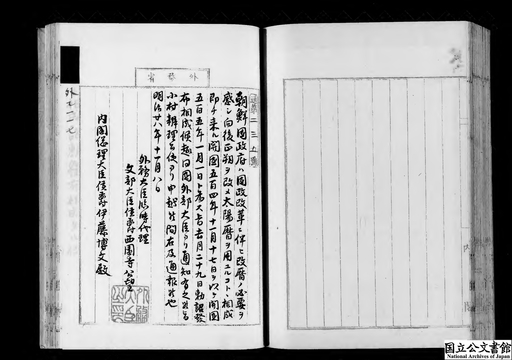 外務省
朝鮮國政府ハ國政改革ニ伴ヒ改暦ノ必要ヲ
感シ向後正朔ヲ改メ太陽暦ヲ用ユルコトニ相成
即チ来ル開國五百四年十一月十七日ヲ以テ開國
五百五年一月一日ト為ス旨去月二十九日勅諚發
布相成候趣同國外部大臣ヨリ通知有之
小村辨理公使ヨリ申越候間右及通報候也
明治廿八年十一月八日
外務大臣臨時代理
文部大臣侯爵西園寺公望
内閣總理大臣侯爵伊藤博文殿
国立公文書館
National Archives of Japan